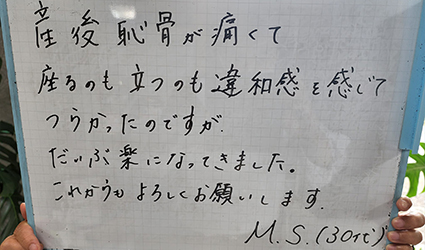 産後恥骨が痛くて
座るのも立つのも違和感を感じて
つらかったのですが.
だいぶ楽になってきました。
これからもよろしくお願いします.
M.S.(30代)